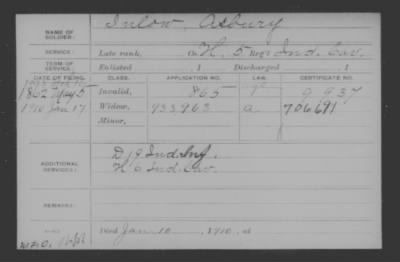 NAME OF SOLDIER: Inlow, Asbury
SERVICE: Late rank, Co. H, 5 Reg't Ind. Cav.
TERM OF SERVICE: Enlisted 1 Discharged 1
DATE OF FILING. CLASS. APPLICATION NO. LAW. CERTIFICATE NO.
1862 Invalid, 865 9937
1910 Jan 17 Widow, 933,963 a 706691
Minor,
ADDITIONAL SERVICES: D 19 Ind. Inf.
Ind. Cav.
REMARKS:
Died Jan 10, 1910, at